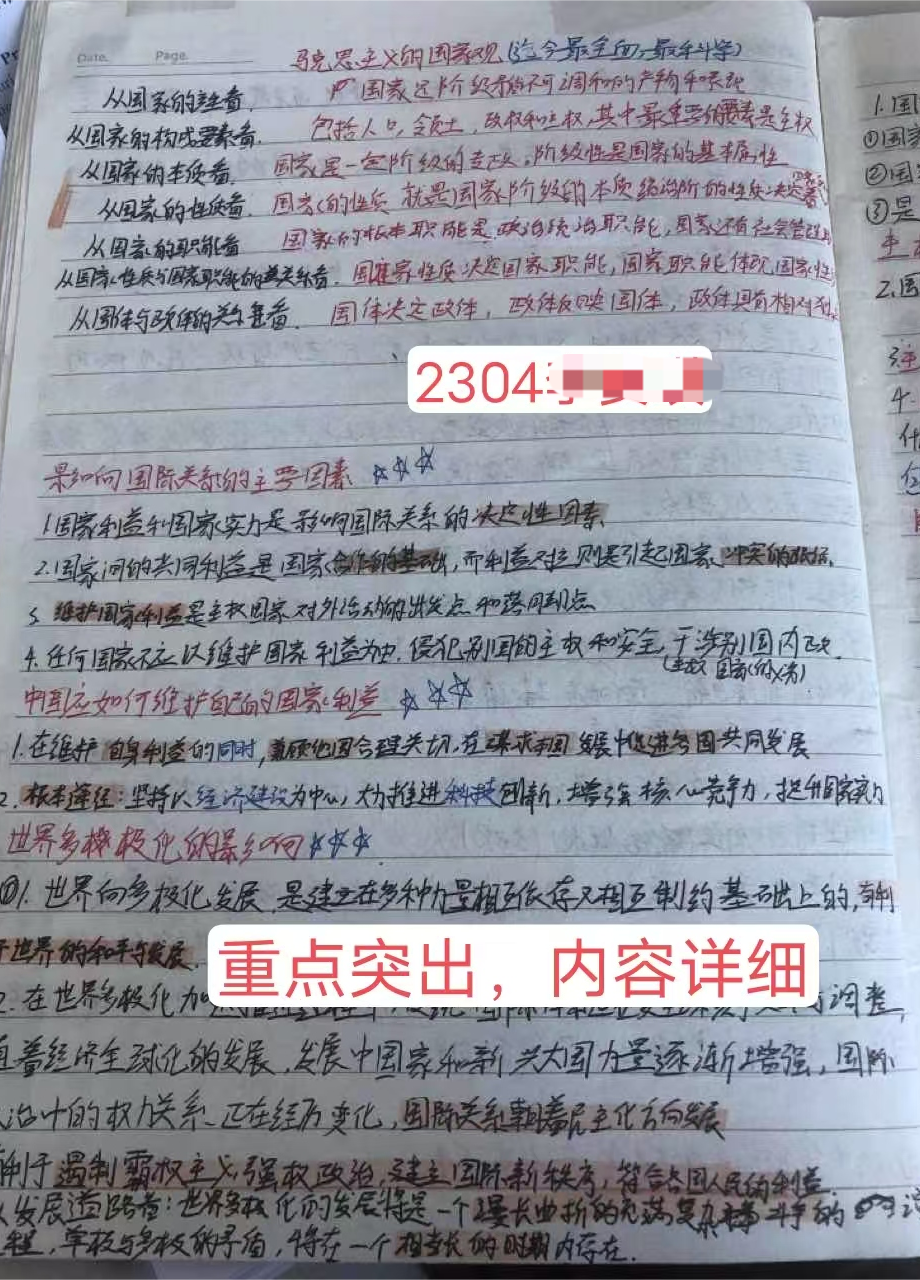 Date.
Page.
马克思主义的国家观(迄今最全面,最科学)
从国家的产生看. 国家是阶级矛盾不可调和的产物和表现
从国家的构成要素看. 包括人口,领土,政权和主权,其中最重要的要素是主权
从国家的本质看. 国家是一定阶级的专政,阶级性是国家的基本属性
从国家的性质看. 国家的性质就是国家阶级的本质 统治阶的性质决定
从国家的职能看 国家的根本职能是政治统治职能,国家还有社会管理
从国家性质与国家职能的关系看. 国家性质决定国家职能,国家职能体现国家性
从国体与政体的关系看. 国体决定政体, 政体反映国体, 政体具有相对独
2304
影响国际关系的主要因素 ☆☆☆
1.国家利益和国家实力是影响国际关系的决定性因素
2.国家间的共同利益是国家合作的基础,而利益对立则是引起国家冲突的根源.
3.维护国家利益是主权国家对外活动的出发点和落脚点
4.任何国家不应以维护国家利益为由.侵犯别国的主权和安全,干涉别国内政.
(主权国家的义务)
中国应如何维护自己的国家利益 ☆☆☆
1.在维护自身利益的同时,兼顾他国合理关切,在谋求我国发展中促进各国共同发展
2.根本途径:坚持以经济建设为中心,大力推进科技创新,增强核心竞争力,提升国家实力
世界多极化的影响 ☆☆☆
①1.世界向多极化发展,是建立在多种力量相互依存又相互制约基础上的,有利
于世界的和平与发展.
重点突出,内容详细
2.在世界多极化 调整,
着经济全球化的发展,发展中国家和新兴大国力量逐渐增强,国际
治中的权力关系正在经历变化,国际关系朝着民主化方向发展
利于遏制霸权主义,强权政治,建立国际新秩序,符合各国人民的利益.
发展道路看:世界多极化的发展将是一个漫长曲折的充满复杂斗争的
程,单极与多极的矛盾,将在一个相当长的时期内存在.
1.国
①国
②国
③是
2.国
3.主
4.
什